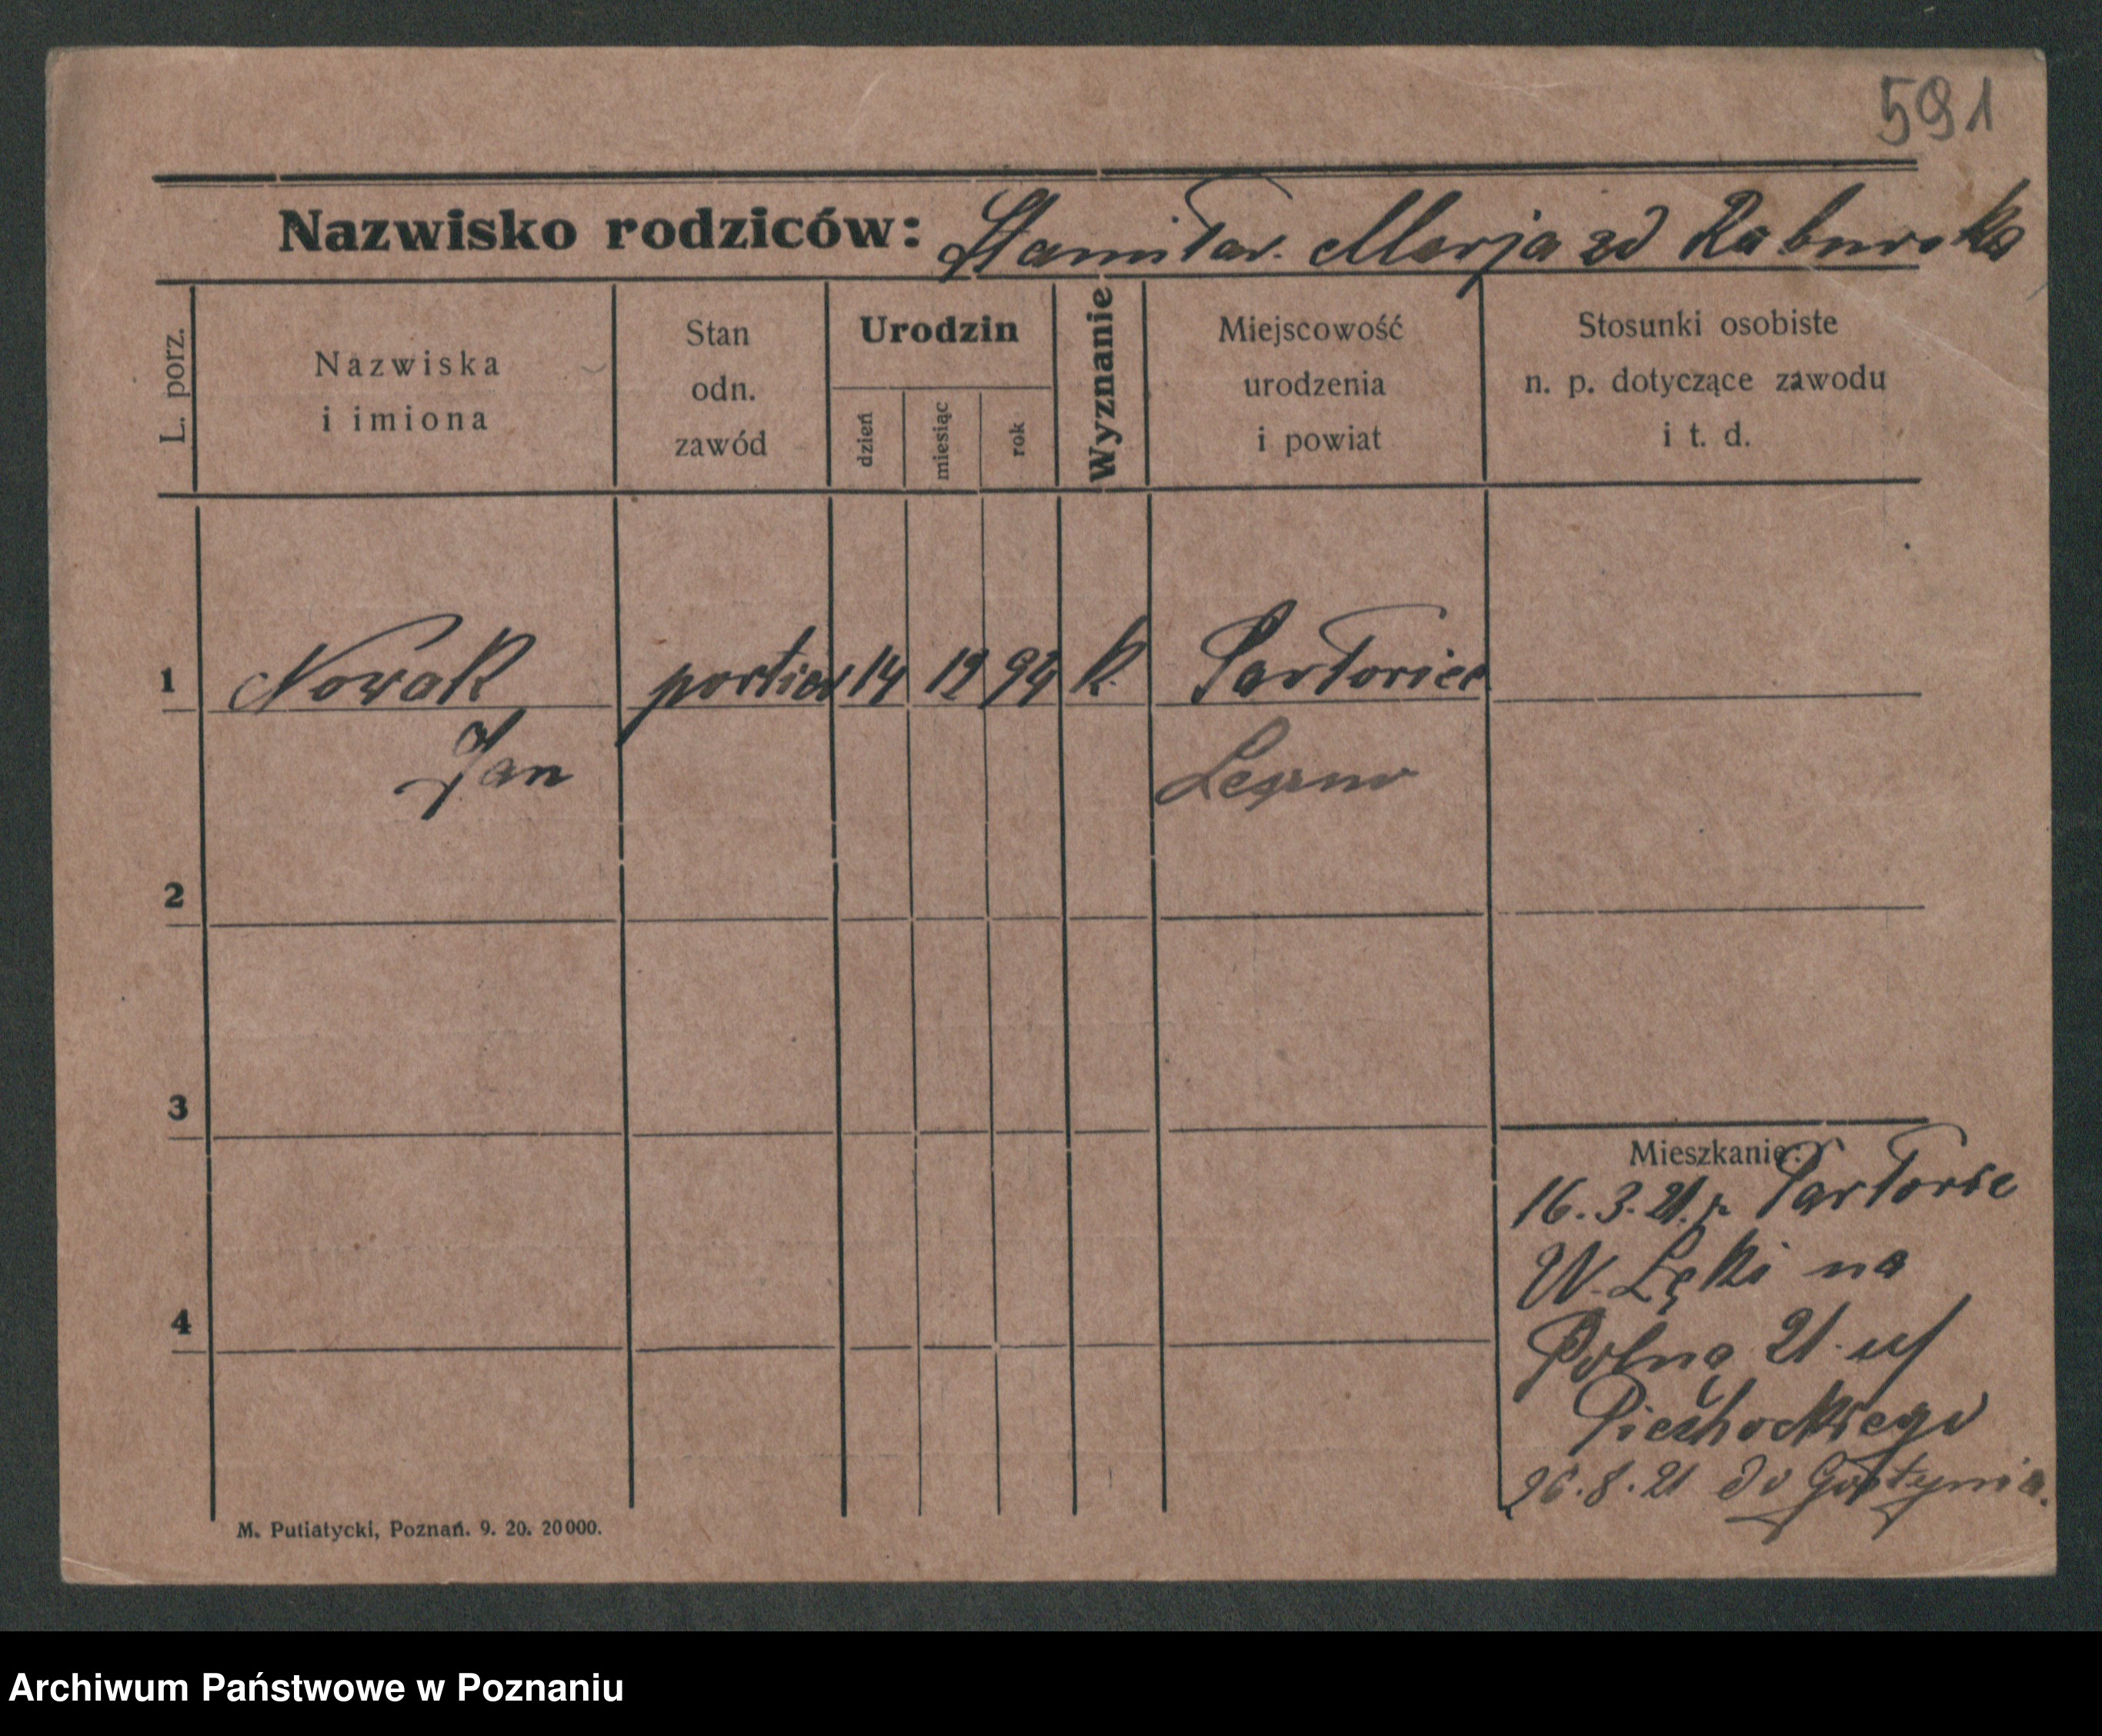 591
Nazwisko rodziców: Stanisław. Marja zd Raburska
L. porz.
Nazwiska
i imiona
Stan
odn.
zawód
Urodzin
dzień
miesiąc
rok
Wyznanie
Miejscowość
urodzenia
i powiat
Stosunki osobiste
n. p. dotyczące zawodu
i t. d.
1 Nowak portier 14 12 94 k.
Jan
2
3
4
Mieszkanie:
16.3.21. z
W. Łęki na
Polną 21. u/
Piechockiego
26.8.21 do Gostynia.
M. Putiatycki, Poznań. 9. 20. 20000.
Archiwum Państwowe w Poznaniu